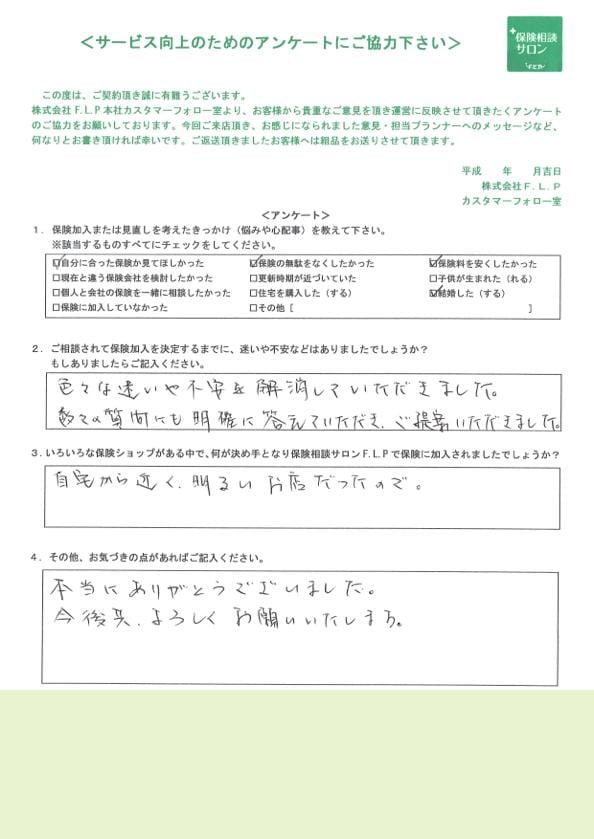 ＜サービス向上のためのアンケートにご協力下さい＞
+保険相談
サロン
F.L.P
この度は、ご契約頂き誠に有難うございます。
株式会社F.L.P本社カスタマーフォロー室より、お客様から貴重なご意見を頂き運営に反映させて頂きたくアンケート
のご協力をお願いしております。今回ご来店頂き、お感じになられました意見・担当プランナーへのメッセージなど、
何なりとお書き頂ければ幸いです。ご返送頂きましたお客様へは粗品をお送りさせて頂きます。
平成　　年　　月吉日
株式会社F.L.P
カスタマーフォロー室
＜アンケート＞
1．保険加入または見直しを考えたきっかけ（悩みや心配事）を教えて下さい。
※該当するものすべてにチェックをしてください。
☑自分に合った保険か見てほしかった　☑保険の無駄をなくしたかった　☑保険料を安くしたかった
□現在と違う保険会社を検討したかった　□更新時期が近づいていた　□子供が生まれた（れる）
□個人と会社の保険を一緒に相談したかった　□住宅を購入した（する）　☑結婚した（する）
□保険に加入していなかった　□その他［　　　］
2．ご相談されて保険加入を決定するまでに、迷いや不安などはありましたでしょうか？
もしありましたらご記入ください。
色々な迷いや不安を解消していただきました。
数々の質問にも明確に答えていただき、ご提案いただきました。
3．いろいろな保険ショップがある中で、何が決め手となり保険相談サロンF.L.Pで保険に加入されましたでしょうか？
自宅から近く、明るいお店だったので。
4．その他、お気づきの点があればご記入ください。
本当にありがとうございました。
今後共、よろしくお願いいたします。